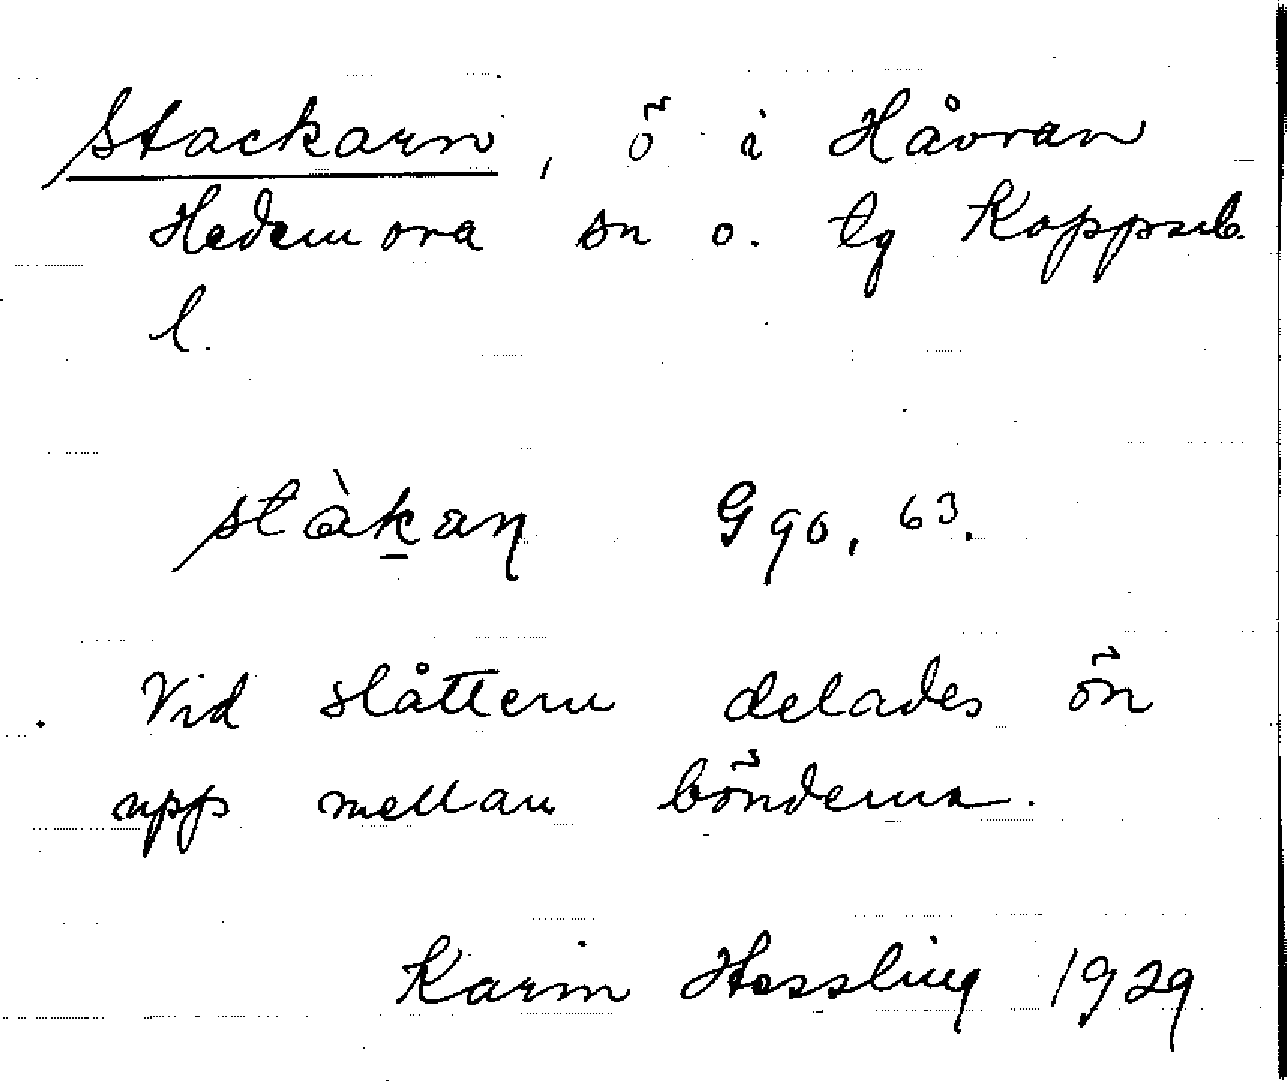 Stackarn, ö i Håvran
Hedemora sn o. tg Kopparb.
l.
stàkan G 90, 63.
Vid slåttern delades ön
upp mellan bönderna.
Karin Hessling 1929